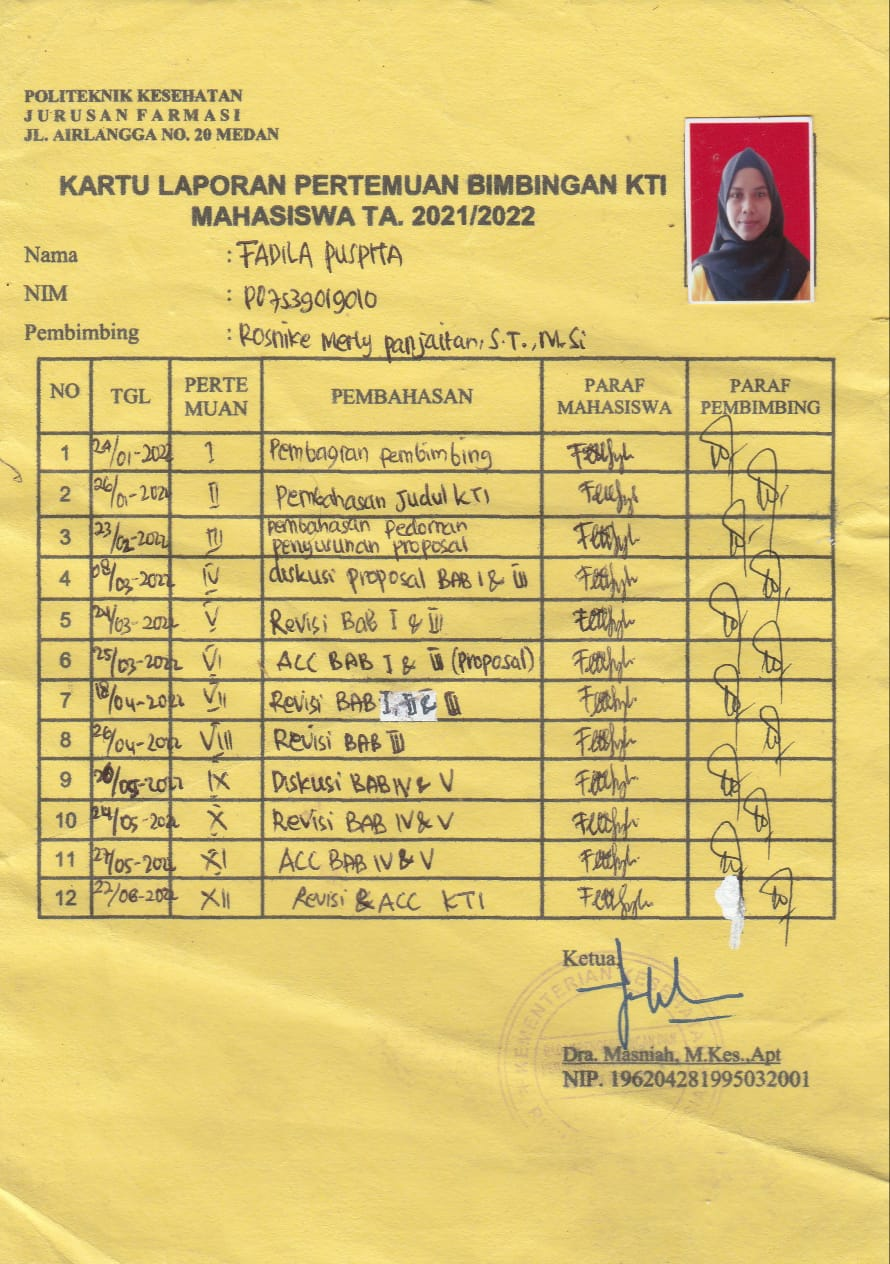 POLITEKNIK KESEHATAN
JURUSAN FARMASI
JL. AIRLANGGA NO. 20 MEDAN
KARTU LAPORAN PERTEMUAN BIMBINGAN KTI
MAHASISWA TA. 2021/2022
Nama : FADILA PUSPITA
NIM : P07539019010
Pembimbing : Rosnike Merly panjaitan, S.T., M.Si
NO TGL PERTE MUAN PEMBAHASAN PARAF MAHASISWA PARAF PEMBIMBING
1 24/01-2022 I Pembagian pembimbing
2 26/01-2022 II Pembahasan Judul KTI
3 23/02-2022 III pembahasan pedoman
penyusunan proposal
4 08/03-2022 IV diskusi proposal BAB I & III
5 24/03-2022 V Revisi Bab I & III
6 25/03-2022 VI ACC BAB I & III (proposal)
7 18/04-2022 VII Revisi BAB I, II & III
8 /04-2022 VIII Revisi BAB III
9 /05-2022 IX Diskusi BAB IV & V
10 24/05-2022 X Revisi BAB IV & V
11 27/05-2022 XI ACC BAB IV & V
12 22/06-2022 XII Revisi & ACC KTI
Ketua,
KEMENTERIAN KESEHATAN
Dra. Masniah, M.Kes.,Apt
NIP. 196204281995032001